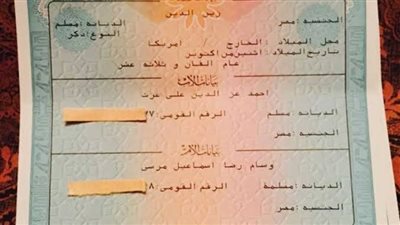 زين الدين
الجنسيه: مصر الديانه: مسلم
النوع: ذكر
محل الميلاد: الخارج امريكا
تاريخ الميلاد: اثنين من اكتوبر
عام الفان و ثلاثه عشر
بيانات الأب
احمد عز الدين على عزت
الديانه: مسلم الرقم القومى: ٢٧
الجنسيه: مصر
بيانات الأم
وسام رضا اسماعيل مرسى
الديانه: مسلمة الرقم القومى: ٢٨
الجنسيه: مصر